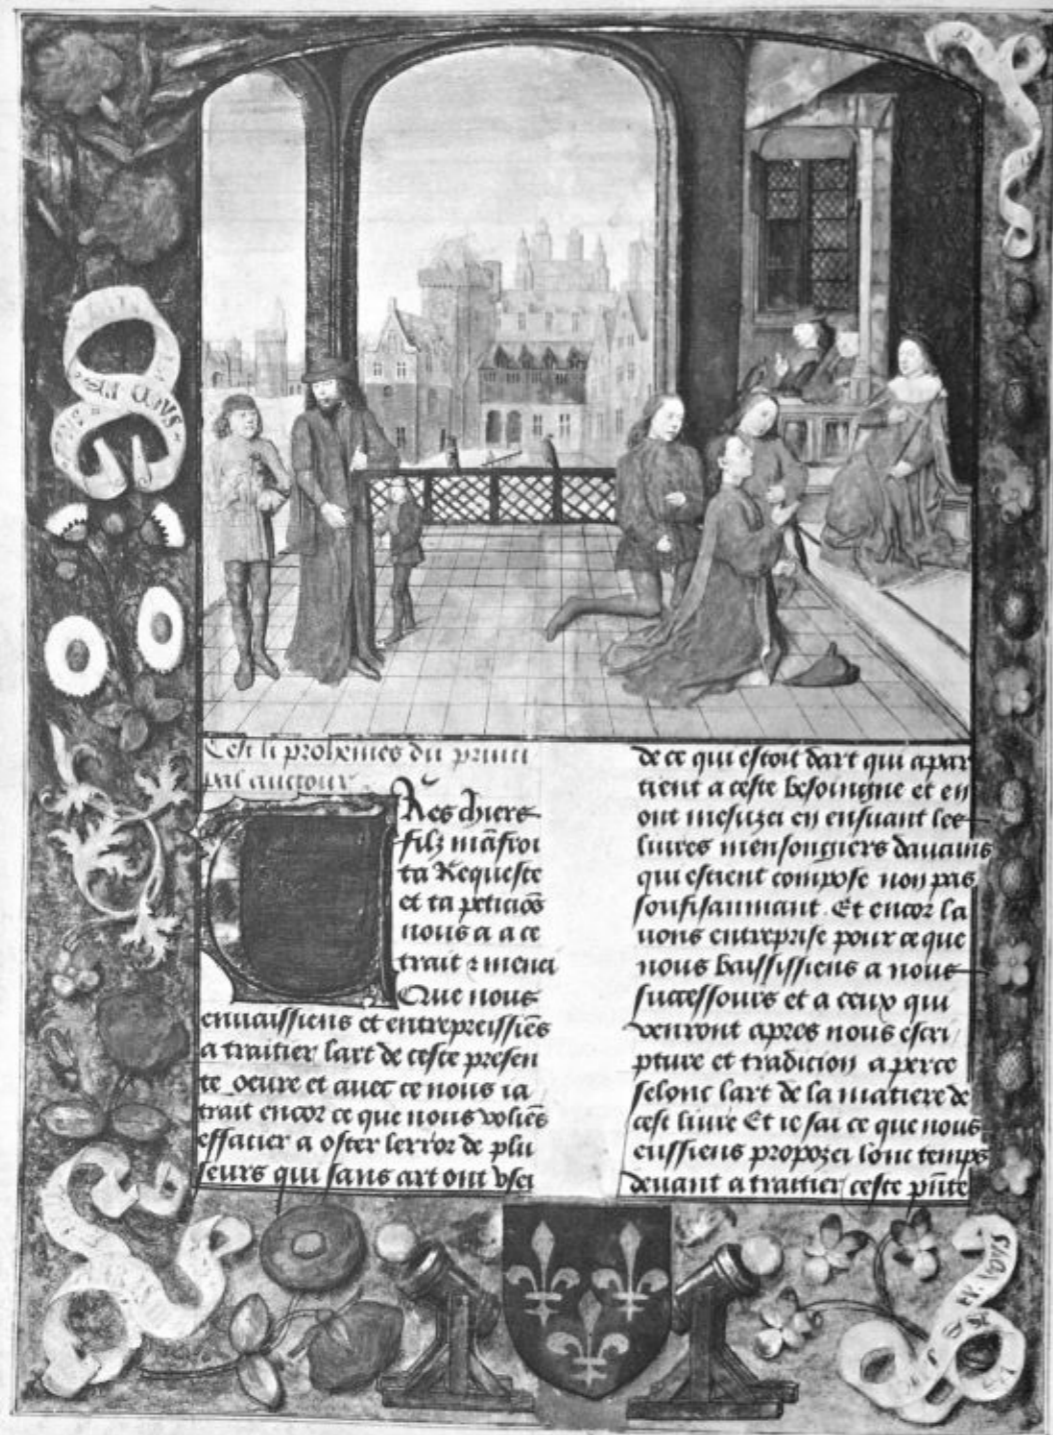 Cest li prohemes du princi
pal auctour
Res chiers
filz māfroi
ta Requeste
et ta peticiōs
nous a a ce
trait ⁊ menei
Que nous
envaissiens et entrepreissiēs
a traitier lart de ceste presen
te oeure et avec ce nous ia
trait encor ce que nous voliēs
effacier a oster lerror de plu
seurs qui sans art ont vsei
de ce qui estoit dart qui apar
tient a ceste besoingne et en
ont mesuzei en ensuant les
livres mensongiers davains
qui estient compose non pas
soufisaumant. Et encor la
vons entreprise pour ce que
nous baississiens a nous
successours et a ceux qui
venront apres nous escri
pture et tradicion aperce
selonc lart de la matiere de
cest livre Et ie sai ce que nous
eussiens propozei lonc temps
devant a traitier ceste pn̄te